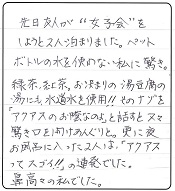 先日友人が“女子会”を
しようと2人泊まりました。ペット
ボトルの水を使わない私に驚き。
緑茶、紅茶、お決まりの湯豆腐の
湯にも水道水を使用!!そのナゾを
「アクアスのお陰なのよ」と話すとスマ
驚き口を開けのんぐりと。更に夜
お風呂に入った2人は、「アクアス
ってスゴイ!!」の連発でした。
最高々の私でした。